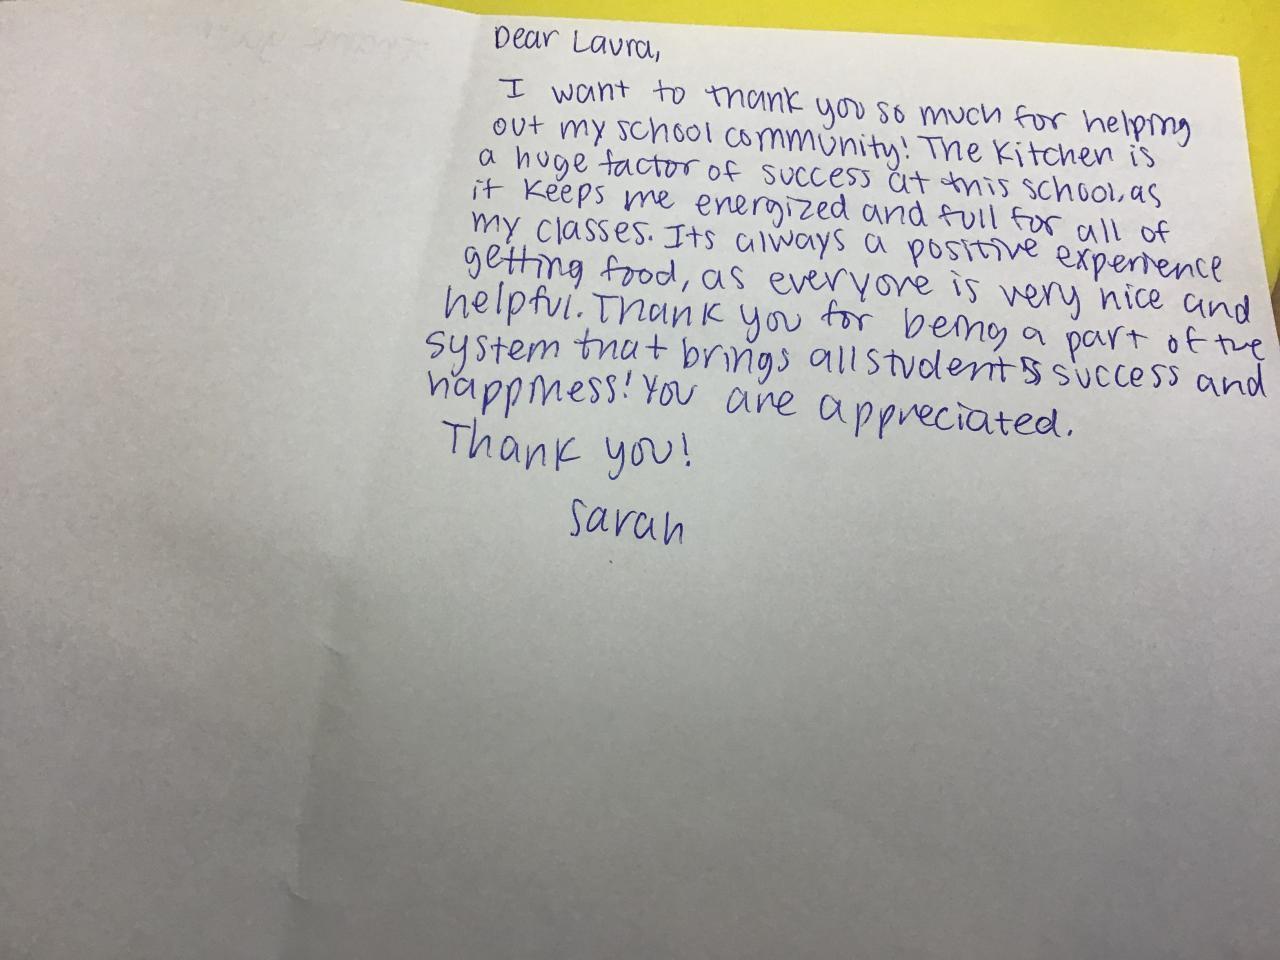 Dear Laura,
I want to thank you so much for helping
out my school community! The Kitchen is
a huge factor of success at this school, as
it keeps me energized and full for all of
my classes. Its always a positive experience
getting food, as everyone is very nice and
helpful. Thank you for being a part of the
system that brings all students success and
happiness! You are appreciated.
Thank you!
Sarah